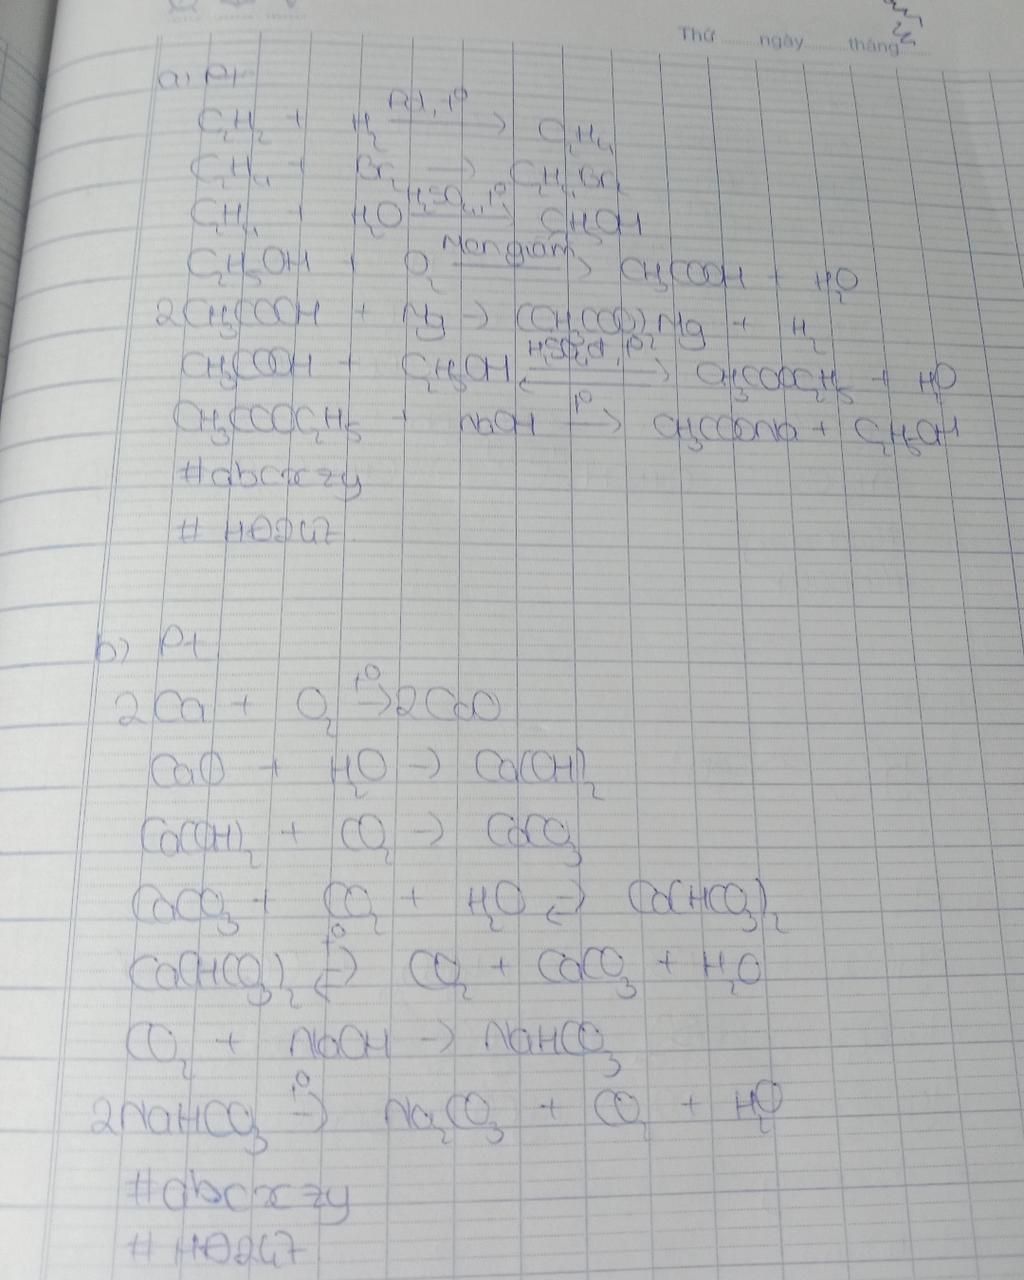 Thứ ngày tháng
a) Pt
C₂H₂ + H₂ Pd, t⁰ → C₂H₄
C₂H₄ + Br₂ → C₂H₄Br₂
C₂H₄ + H₂O H₂SO₄, t⁰ → C₂H₅OH
C₂H₅OH + O₂ Men giấm → CH₃COOH + H₂O
2CH₃COOH + Mg → (CH₃COO)₂Mg + H₂
CH₃COOH + C₂H₅OH H₂SO₄đ, t⁰ ⇌ CH₃COOC₂H₅ + H₂O
CH₃COOC₂H₅ + NaOH t⁰ → CH₃COONa + C₂H₅OH
#abcxzy
# HĐ247
b) Pt
2Ca + O₂ t⁰ → 2CaO
CaO + H₂O → Ca(OH)₂
Ca(OH)₂ + CO₂ → CaCO₃
CaCO₃ + CO₂ + H₂O ⇌ Ca(HCO₃)₂
Ca(HCO₃)₂ t⁰ ⇌ CO₂ + CaCO₃ + H₂O
CO₂ + NaOH → NaHCO₃
2NaHCO₃ t⁰ → Na₂CO₃ + CO₂ + H₂O
#abcxzy
# HĐ247